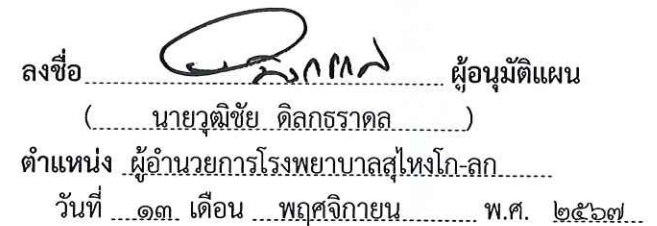 ลงชื่อ ผู้อนุมัติแผน
( นายวุฒิชัย ดิลกธราดล )
ตำแหน่ง ผู้อำนวยการโรงพยาบาลสุไหงโก-ลก
วันที่ ๑๓ เดือน พฤศจิกายน พ.ศ. ๒๕๖๗